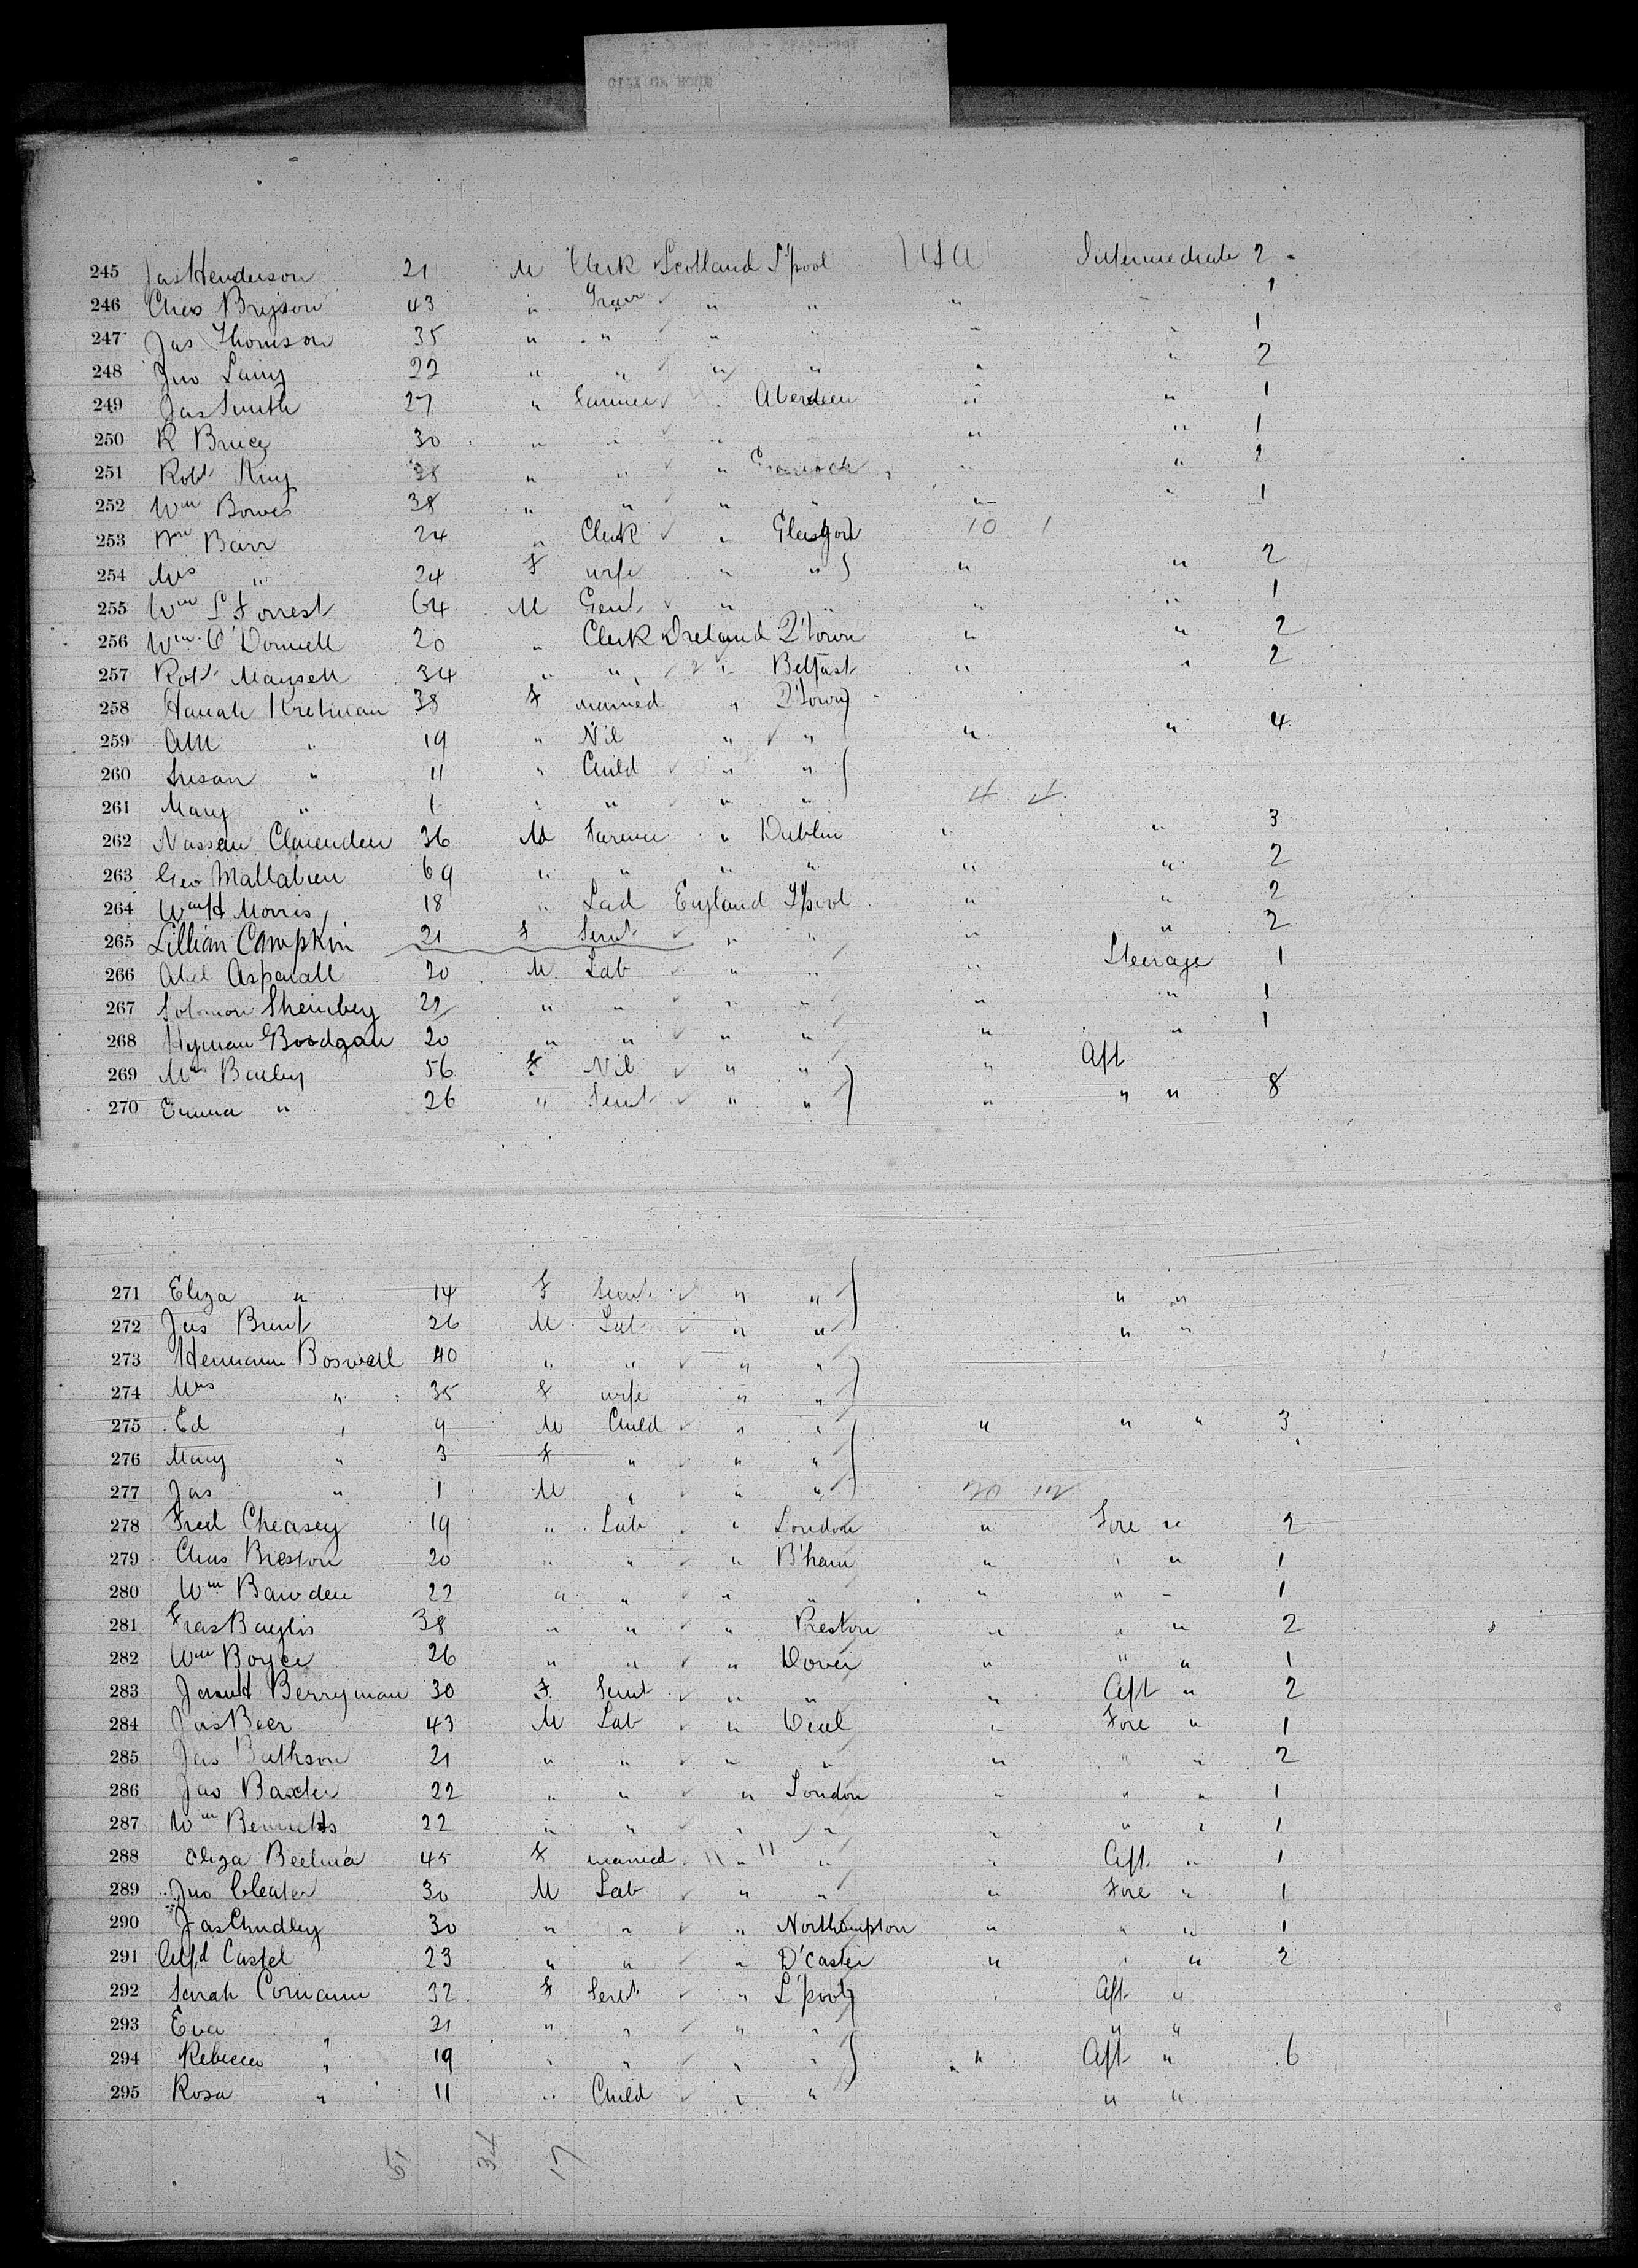 CITY OF ROME
245 Jas Henderson 21 M Clerk Scotland L'pool USA Intermediate 2
246 Chas Bryson 43 " " " " " 1
247 Jas Thomson 35 " " " " " " 1
248 Jno Laing 22 " " " " " " 2
249 Jas Smith 27 " Farmer " Aberdeen " " 1
250 R Bruce 30 " " " " " " 1
251 Robt King 38 " " " " " 1
252 Wm Bowes 38 " " " " " " 1
253 Wm Barr 24 " Clerk " Glasgow 10 1
254 Mrs " 24 F wife " " " " 2
255 Wm L Forrest 64 M Gent " " " " 1
256 Wm O'Donnell 20 " Clerk Ireland Q'town " " 2
257 Robt Mansell 34 " " " Belfast " " 2
258 Hanah Kretman 38 F married " Q'town
259 " 19 " Nil " " " " 4
260 Susan " 11 " Child " "
261 Mary " 1 " " " " 4
262 Nassau Clarenden 36 M Farmer " Dublin " " 3
263 Geo Mallalieu 69 " " " " " " 2
264 Wm H Morris 18 " Lad England L'pool " " 2
265 Lillian Campkin 21 F Servt " " " " 2
266 Abel Aspanall 20 M Lab " " " Steerage 1
267 Solomon Sheinberg 22 " " " " " " 1
268 Hyman Boodgan 20 " " " " " " 1
269 Mrs Bailey 56 F Nil " " " Aft
270 Emma " 26 " Servt " " " " " 8
271 Eliza " 14 F Servt " " " "
272 Jas Brent 26 M Lab " " " "
273 Hermann Boswell 40 " " " "
274 Mrs " 35 F wife " "
275 Ed " 9 M Child " " " " " 3
276 Mary " 3 F " " "
277 Jas " 1 M " " "
278 Fred Cheasey 19 " Lab " London " Fore " 2
279 Chas Breston 20 " " " B'ham " " " 1
280 Wm Bawden 22 " " " " " " " 1
281 Fras Baylis 38 " " " Preston " " " 2
282 Wm Boyce 26 " " " Dover " " " 1
283 Berryman 30 F Servt " " " Aft " 2
284 Jas Beer 43 M Lab " Deal " Fore " 1
285 Jas Bathson 21 " " " " " " " 2
286 Jas Baxter 22 " " " London " " " 1
287 Wm Bennetts 22 " " " " " " " 1
288 Eliza 45 F married 11 " 11 " " Aft " 1
289 Jno Cleater 30 M Lab " " " Fore " 1
290 Jas Chudley 30 " " " Northampton " " " 1
291 Alfd Castel 23 " " " D'caster " " " 2
292 Sarah Cornann 32 F Servt " L'pool " Aft "
293 Eva " 21 " " " " " "
294 Rebecca " 19 " " " " " Aft " 6
295 Rosa " 11 " Child " " " "
51 34 17